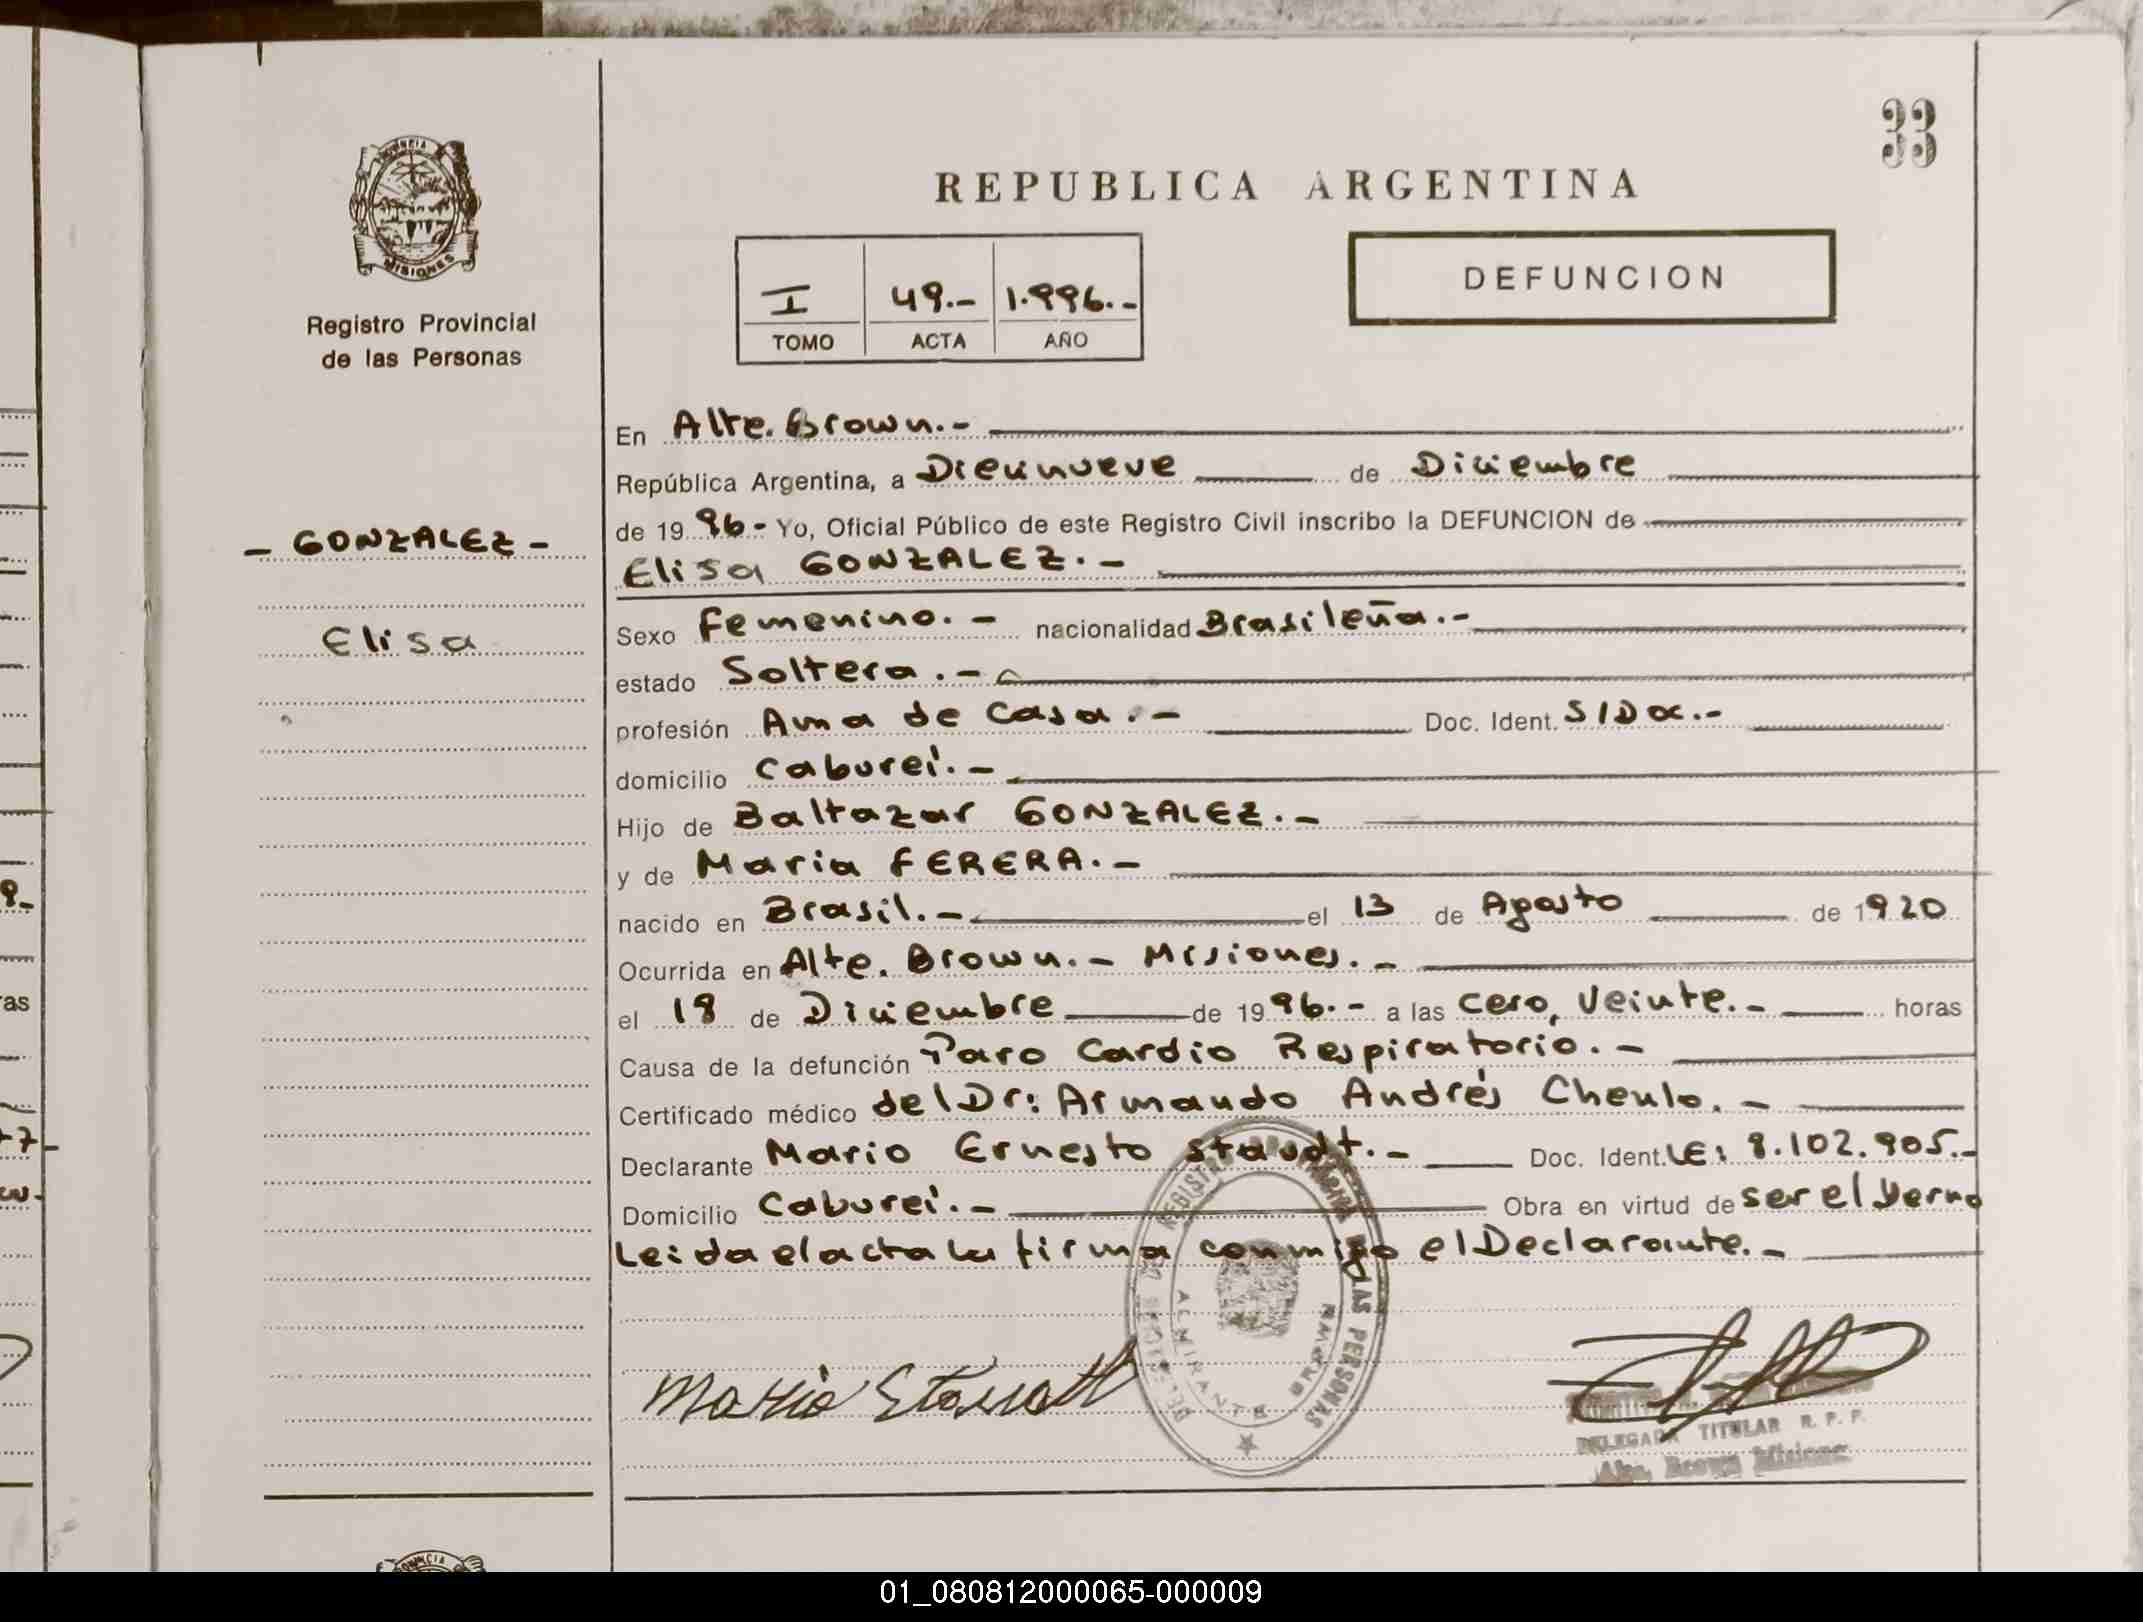 33
REPUBLICA ARGENTINA
PROVINCIA DE
MISIONES
Registro Provincial
de las Personas
I 49.- 1.996.-
TOMO ACTA AÑO
DEFUNCION
- GONZALEZ -
Elisa
En Alte. Brown.-
República Argentina, a Diecinueve de Diciembre
de 19 96.- Yo, Oficial Público de este Registro Civil inscribo la DEFUNCION de
Elisa GONZALEZ.-
Sexo Femenino.- nacionalidad Brasileña.-
estado Soltera.-
profesión Ama de Casa.- Doc. Ident. S/Doc.-
domicilio Caburei.-
Hijo de Baltazar GONZALEZ.-
y de Maria FERERA.-
nacido en Brasil.- el 13 de Agosto de 1920
Ocurrida en Alte. Brown.- Misiones.-
el 19 de Diciembre de 1996.- a las cero, Veinte.- horas
Causa de la defunción Paro Cardio Respiratorio.-
Certificado médico del Dr: Armando Andrés Chenlo.-
Declarante Mario Ernesto Staudt.- Doc. Ident. LE: 8.102.905.-
Domicilio Caburei.- Obra en virtud de ser el Yerno
Leida el acta la firma conmigo el Declarante.-
REGISTRO PROVINCIAL DE LAS PERSONAS
ALMIRANTE BROWN
Mario Staudt
DELEGADA TITULAR R. P. P.
Alte. Brown Misiones
01_080812000065-000009